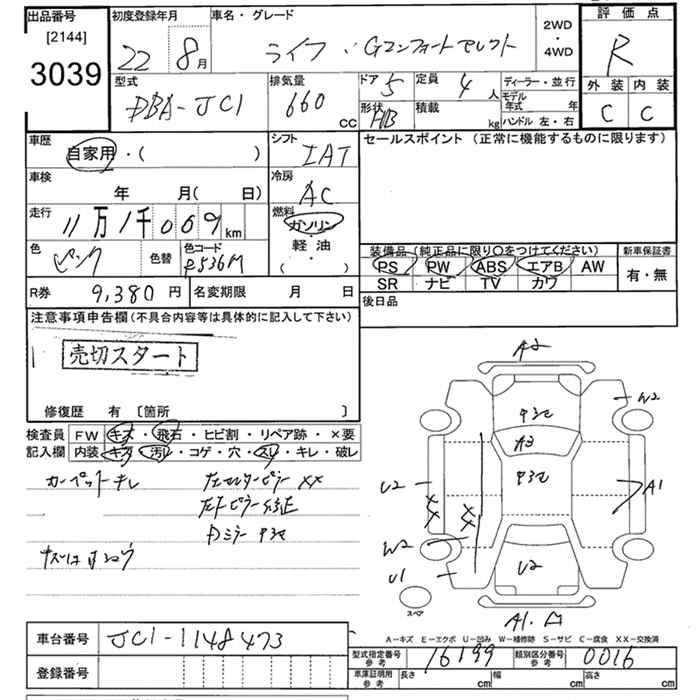 出品番号 初度登録年月 車名・グレード 2WD・4WD 評価点
[2144]
3039 22 8月 ライフ・Gコンフォートセレクト R
型式 排気量 ドア 定員 ディーラー・並行 外装 内装
DBA-JC1 660cc 5 4人 モデル年式 年 C C
形状 HB 積載 kg ハンドル 左・右
車歴 シフト セールスポイント(正常に機能するものに限ります)
自家用・( ) IAT
車検 冷房
年 月(日) AC
走行 燃料
11万1千069km ガソリン・軽油・( )
色 色替 色コード 装備品(純正品に限り○をつけてください) 新車保証書
ピンク R536M PS PW ABS エアB AW 有・無
R券 9,380円 名変期限 月 日 SR ナビ TV カワ
注意事項申告欄(不具合内容等は具体的に記入して下さい) 後日品
売切スタート
修復歴 有 [箇所 ]
検査員 FW キズ・飛石・ヒビ割・リペア跡・×要
記入欄 内装 キズ・汚レ・コゲ・穴・スレ・キレ・破レ
カーペットキレ 左センターピラーXX
左Fピラー修正
Dミラー
A2
W2
A3
U2 A1
XX XX
W2
U1 U2
スペア
A1.
A-キズ E-エクボ U-凹み W-補修跡 S-サビ C-腐食 XX-交換済
車台番号 JC1-1148473 型式指定番号 参考 16199 類別区分番号 参考 0016
登録番号 車庫証明用 参考 長さ cm 幅 cm 高さ cm